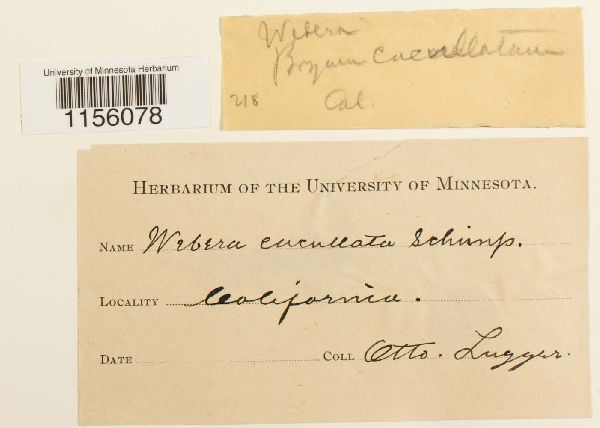 University of Minnesota Herbarium
1156078
Webera
Bryum cucullatum
218
Cal.
HERBARIUM OF THE UNIVERSITY OF MINNESOTA.
NAME Webera cucullata Schimp.
LOCALITY California.
DATE COLL Otto. Lugger.